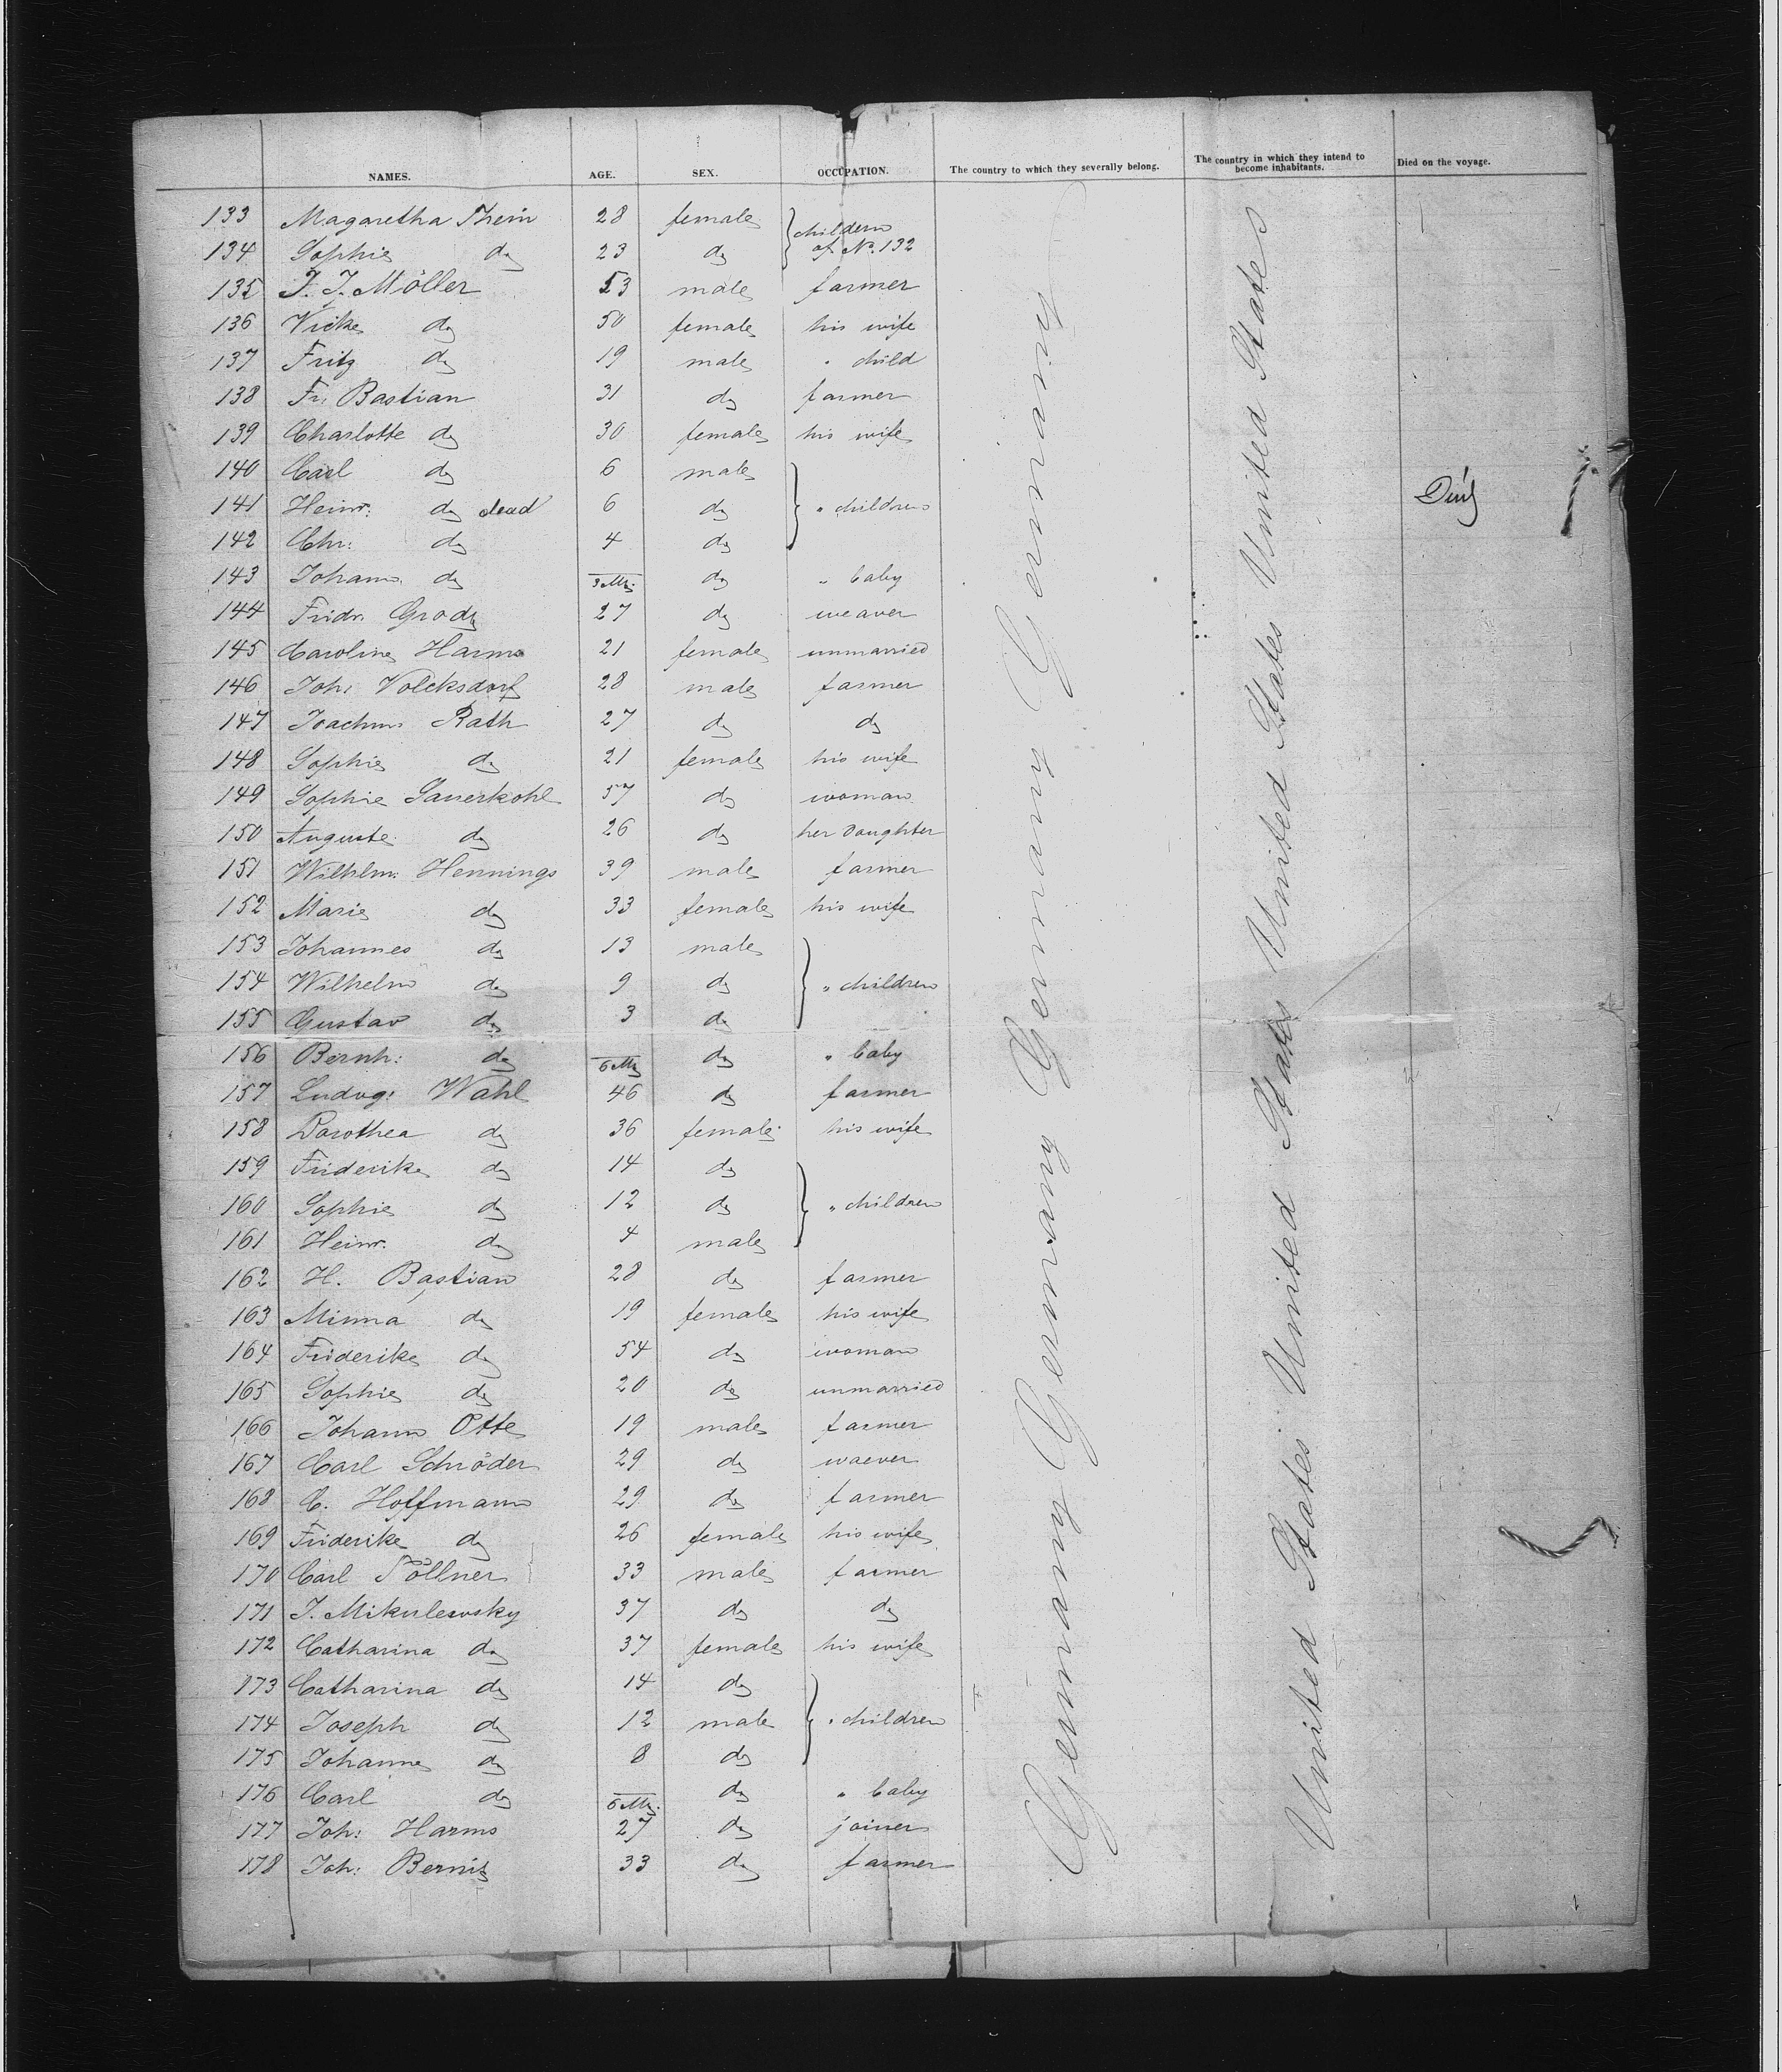 NAMES. AGE. SEX. OCCUPATION. The country to which they severally belong. The country in which they intend to become inhabitants. Died on the voyage.
133 Magaretha Thein 28 female } childern
134 Sophie do 23 do of No. 132
135 J. J. Möller 53 male farmer
136 Vicke do 50 female his wife
137 Fritz do 19 male " child
138 Fr. Bastian 31 do farmer
139 Charlotte do 30 female his wife
140 Carl do 6 male
141 Heinr: do dead 6 do } " children Died
142 Chr: do 4 do
143 Johann do 3 Mo. do " baby
144 Fridr. Grode 27 do weaver
145 Caroline Harms 21 female unmarried
146 Joh: Volcksdorf 28 male farmer
147 Joachim Rath 27 do do
148 Sophie do 21 female his wife
149 Sophie Sauerkohl 57 do woman
150 Auguste do 26 do her daughter
151 Wilhlm: Hennings 39 male farmer
152 Marie do 33 female his wife
153 Johannes do 13 male
154 Wilhelm do 9 do } " children
155 Gustav do 3 do
156 Bernh: do 6 Mo do " baby
157 Ludvg: Wahl 46 do farmer
158 Dorothea do 36 female his wife
159 Friderike do 14 do
160 Sophie do 12 do } " children
161 Heinr. do 4 male
162 H. Bastian 28 do farmer
163 Minna do 19 female his wife
164 Friderike do 54 do woman
165 Sophie do 20 do unmarried
166 Johann Otte 19 male farmer
167 Carl Schröder 29 do waever
168 C. Hoffmann 29 do farmer
169 Friderike do 26 female his wife
170 Carl Töllner 33 male farmer
171 J. Mikulewsky 37 do do
172 Catharina do 37 female his wife
173 Catharina do 14 do
174 Joseph do 12 male } " children
175 Johannes do 8 do
176 Carl do 6 Mo. do " baby
177 Joh: Harms 27 do joiner
178 Joh: Bernitz 33 do farmer
Germany Germany Germany Germany Germany
United States United States United States United States United States